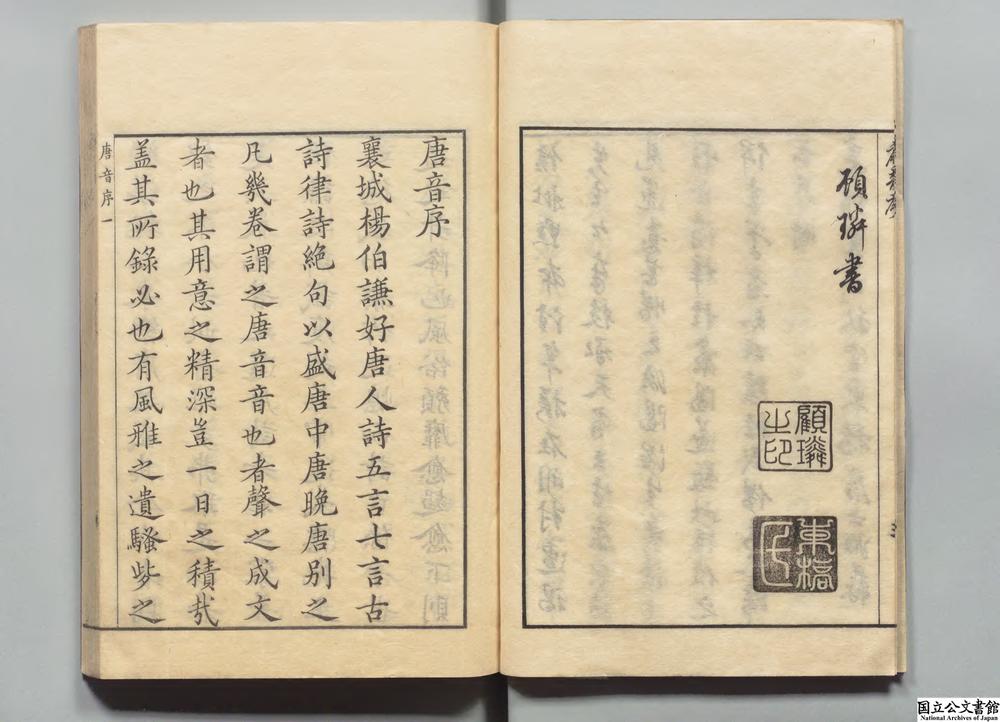 頋璘書
顧璘
之印
東橋
氏
唐音序
襄城楊伯謙好唐人詩五言七言古
詩律詩絕句以盛唐中唐晚唐別之
凡幾卷謂之唐音音也者聲之成文
者也其用意之精深豈一日之積㢤
盖其所錄必也有風雅之遺騷些之
唐音序 一
国立公文書館
National Archives of Japan